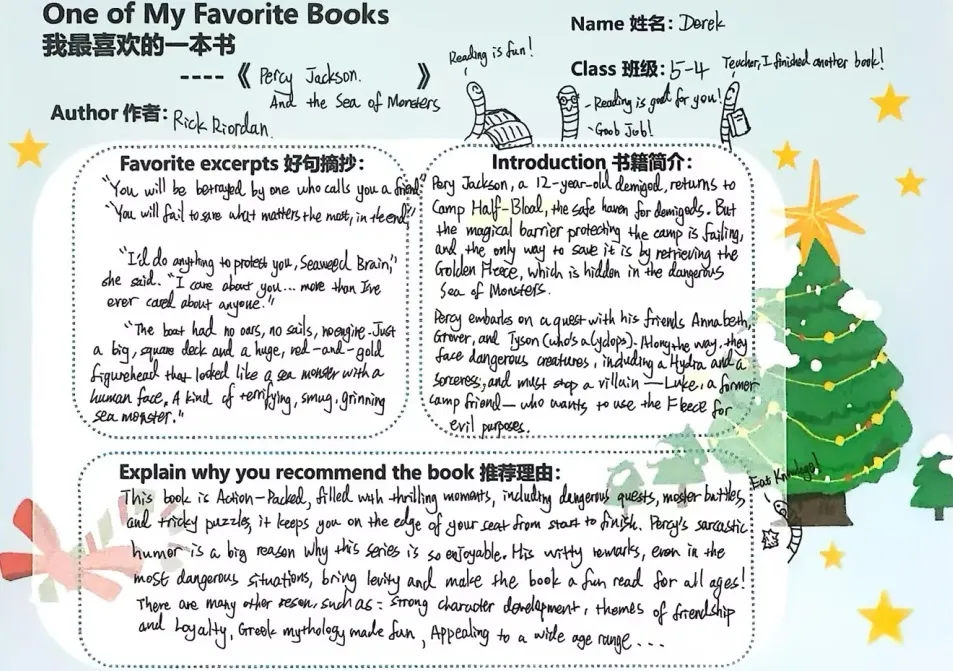 One of My Favorite Books
我最喜欢的一本书
---- 《 Percy Jackson. 》
And the Sea of Monsters
Author 作者: Rick Riordan
Name 姓名: Derek
Class 班级: 5-4
Reading is fun!
Teacher, I finished another book!
- Reading is good for you!
- Goob Job!
Favorite excerpts 好句摘抄:
"You will be betrayed by one who calls you a friend"
"You will fail to save what matters the most, in the end"
"I'd do anything to protect you, Seaweed Brain,"
she said. "I care about you... more than I've
ever cared about anyone."
"The boat had no oars, no sails, no engine. Just
a big, square deck and a huge, red-and-gold
figurehead that looked like a sea monster with a
human face. A kind of terrifying, smug, grinning
sea monster."
Introduction 书籍简介:
Pery Jackson, a 12-year-old demigod, returns to
Camp Half-Blood, the safe haven for demigods. But
the magical barrier protecting the camp is failing,
and the only way to save it is by retrieving the
Golden Fleece, which is hidden in the dangerous
Sea of Monsters.
Percy embarks on a quest with his friends Annabeth,
Grover, and Tyson (who's a Cyclops). Along the way, they
face dangerous creatures, including a Hydra and a
sorceress, and must stop a villain — Luke, a former
camp friend — who wants to use the Fleece for
evil purposes.
Explain why you recommend the book 推荐理由:
This book is Action-Packed, filled with thrilling moments, including dangerous quests, moster battles,
and tricky puzzles, it keeps you on the edge of your seat from start to finish. Percy's sarcastic
humor is a big reason why this series is so enjoyable. His witty remarks, even in the
most dangerous situations, bring levity and make the book a fun read for all ages!
There are many other reson, such as: strong character development, themes of friendship
and Loyalty, Greek mythology made fun, Appealing to a wide age range...
Eat